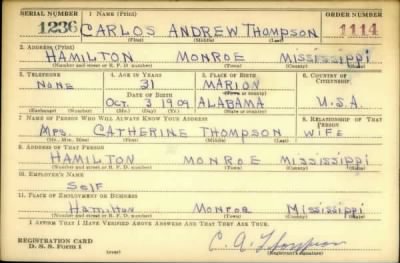 SERIAL NUMBER 1. NAME (Print) ORDER NUMBER
1236 CARLOS ANDREW THOMPSON 1114
(First) (Middle) (Last)
2. ADDRESS (Print)
HAMILTON MONROE MISSISSIPPI
(Number and street or R. F. D. number) (Town) (County) (State)
3. TELEPHONE 4. AGE IN YEARS 5. PLACE OF BIRTH 6. COUNTRY OF CITIZENSHIP
NONE 31 MARION U.S.A.
DATE OF BIRTH (Town or county)
OCT. 3 1909 ALABAMA
(Exchange) (Number) (Mo.) (Day) (Yr.) (State or country)
7. NAME OF PERSON WHO WILL ALWAYS KNOW YOUR ADDRESS 8. RELATIONSHIP OF THAT PERSON
MRS. CATHERINE THOMPSON WIFE
(Mr., Mrs., Miss) (First) (Middle) (Last)
9. ADDRESS OF THAT PERSON
HAMILTON MONROE MISSISSIPPI
(Number and street or R. F. D. number) (Town) (County) (State)
10. EMPLOYER'S NAME
SELF
11. PLACE OF EMPLOYMENT OR BUSINESS
HAMILTON MONROE MISSISSIPPI
(Number and street or R. F. D. number) (Town) (County) (State)
I AFFIRM THAT I HAVE VERIFIED ABOVE ANSWERS AND THAT THEY ARE TRUE.
REGISTRATION CARD
D. S. S. Form 1 (over) C. A. Thompson
(Registrant's signature)